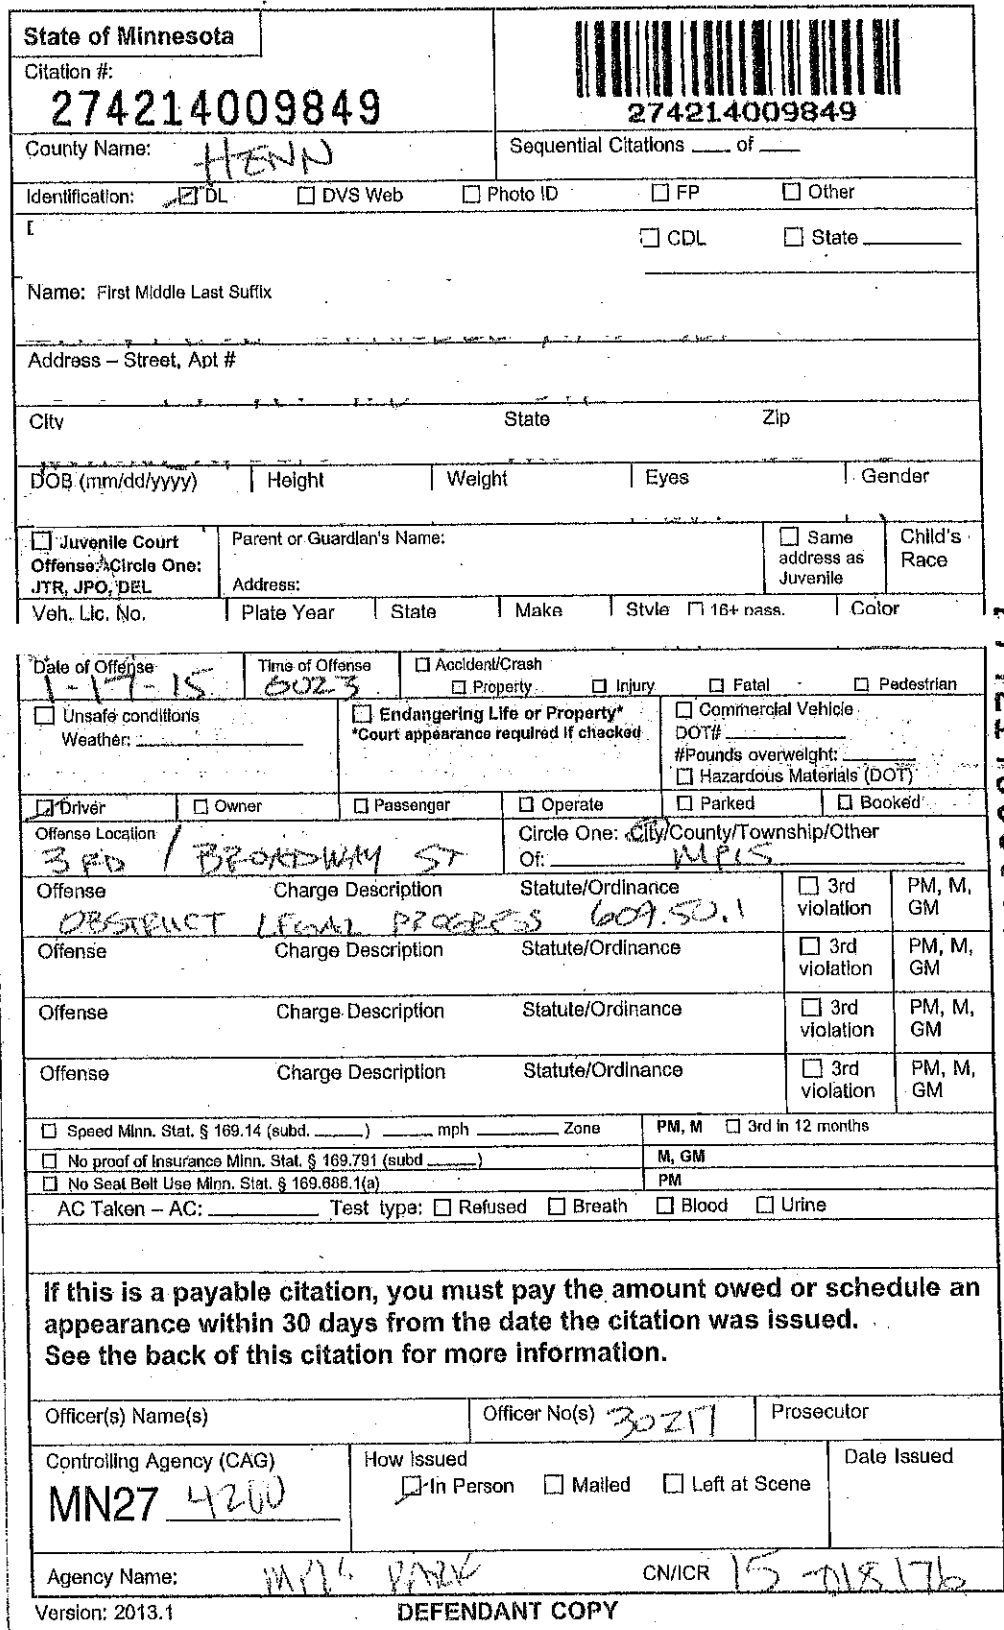 State of Minnesota
Citation #:
274214009849
274214009849
County Name: HENN
Sequential Citations ____ of ____
Identification: DL DVS Web Photo ID FP Other
CDL State
Name: First Middle Last Suffix
Address – Street, Apt #
City State Zip
DOB (mm/dd/yyyy) Height Weight Eyes Gender
Juvenile Court
Offense: Circle One:
JTR, JPO, DEL
Parent or Guardian's Name:
Address:
Same
address as
Juvenile
Child's
Race
Veh. Lic. No. Plate Year State Make Style 16+ pass. Color
Date of Offense Time of Offense Accident/Crash
1-17-15 0023 Property Injury Fatal Pedestrian
Unsafe conditions
Weather:
Endangering Life or Property*
*Court appearance required if checked
Commercial Vehicle
DOT#
#Pounds overweight:
Hazardous Materials (DOT)
Driver Owner Passenger Operate Parked Booked
Offense Location
3RD / BROADWAY ST
Circle One: City/County/Township/Other
Of: MPLS
Offense Charge Description Statute/Ordinance 3rd violation PM, M, GM
OBSTRUCT LEGAL PROGRESS 609.50.1
Offense Charge Description Statute/Ordinance 3rd violation PM, M, GM
Offense Charge Description Statute/Ordinance 3rd violation PM, M, GM
Offense Charge Description Statute/Ordinance 3rd violation PM, M, GM
Speed Minn. Stat. § 169.14 (subd. ____) ____ mph ____ Zone PM, M 3rd in 12 months
No proof of Insurance Minn. Stat. § 169.791 (subd ____) M, GM
No Seat Belt Use Minn. Stat. § 169.686.1(a) PM
AC Taken – AC: ____ Test type: Refused Breath Blood Urine
If this is a payable citation, you must pay the amount owed or schedule an
appearance within 30 days from the date the citation was issued.
See the back of this citation for more information.
Officer(s) Name(s) Officer No(s) 30217 Prosecutor
Controlling Agency (CAG)
MN27 4200
How Issued
In Person Mailed Left at Scene
Date Issued
Agency Name: MPLS PARK CN/ICR
Version: 2013.1 DEFENDANT COPY